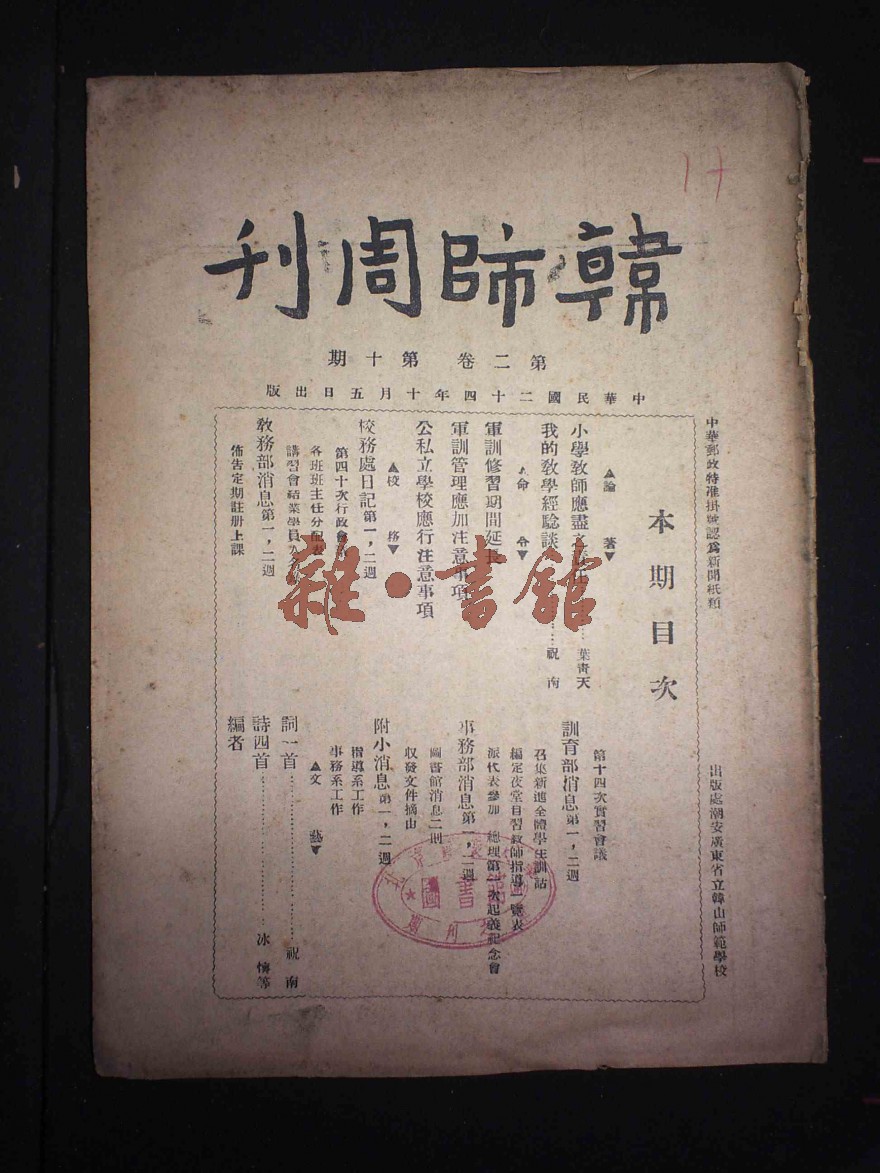 韓師周刊
第二卷 第十期
中華民國二十四年十月五日出版
中華郵政特准掛號認為新聞紙類
出版處潮安廣東省立韓山師範學校
本期目次
▲論 著▼
小學教師應盡之責任……葉青天
我的教學經驗談……祝 南
▲命 令▼
軍訓修習期間延長
軍訓管理應加注意事項
公私立學校應行注意事項
▲校 務▼
校務處日記第一,二週
第四十次行政會議
各班班主任分配表
講習會結業學員
教務部消息第一,二週
佈告定期註册上課
第十四次實習會議
訓育部消息第一,二週
召集新進全體學生訓話
編定夜堂自習教師指導一覽表
派代表參加 總理第一次起義紀念會
事務部消息第一,二週
圖書館消息二則
收發文件摘由
附小消息第一,二週
指導系工作
事務系工作
▲文 藝▼
詞一首……祝 南
詩四首……冰 懷等
編者
雜·書館